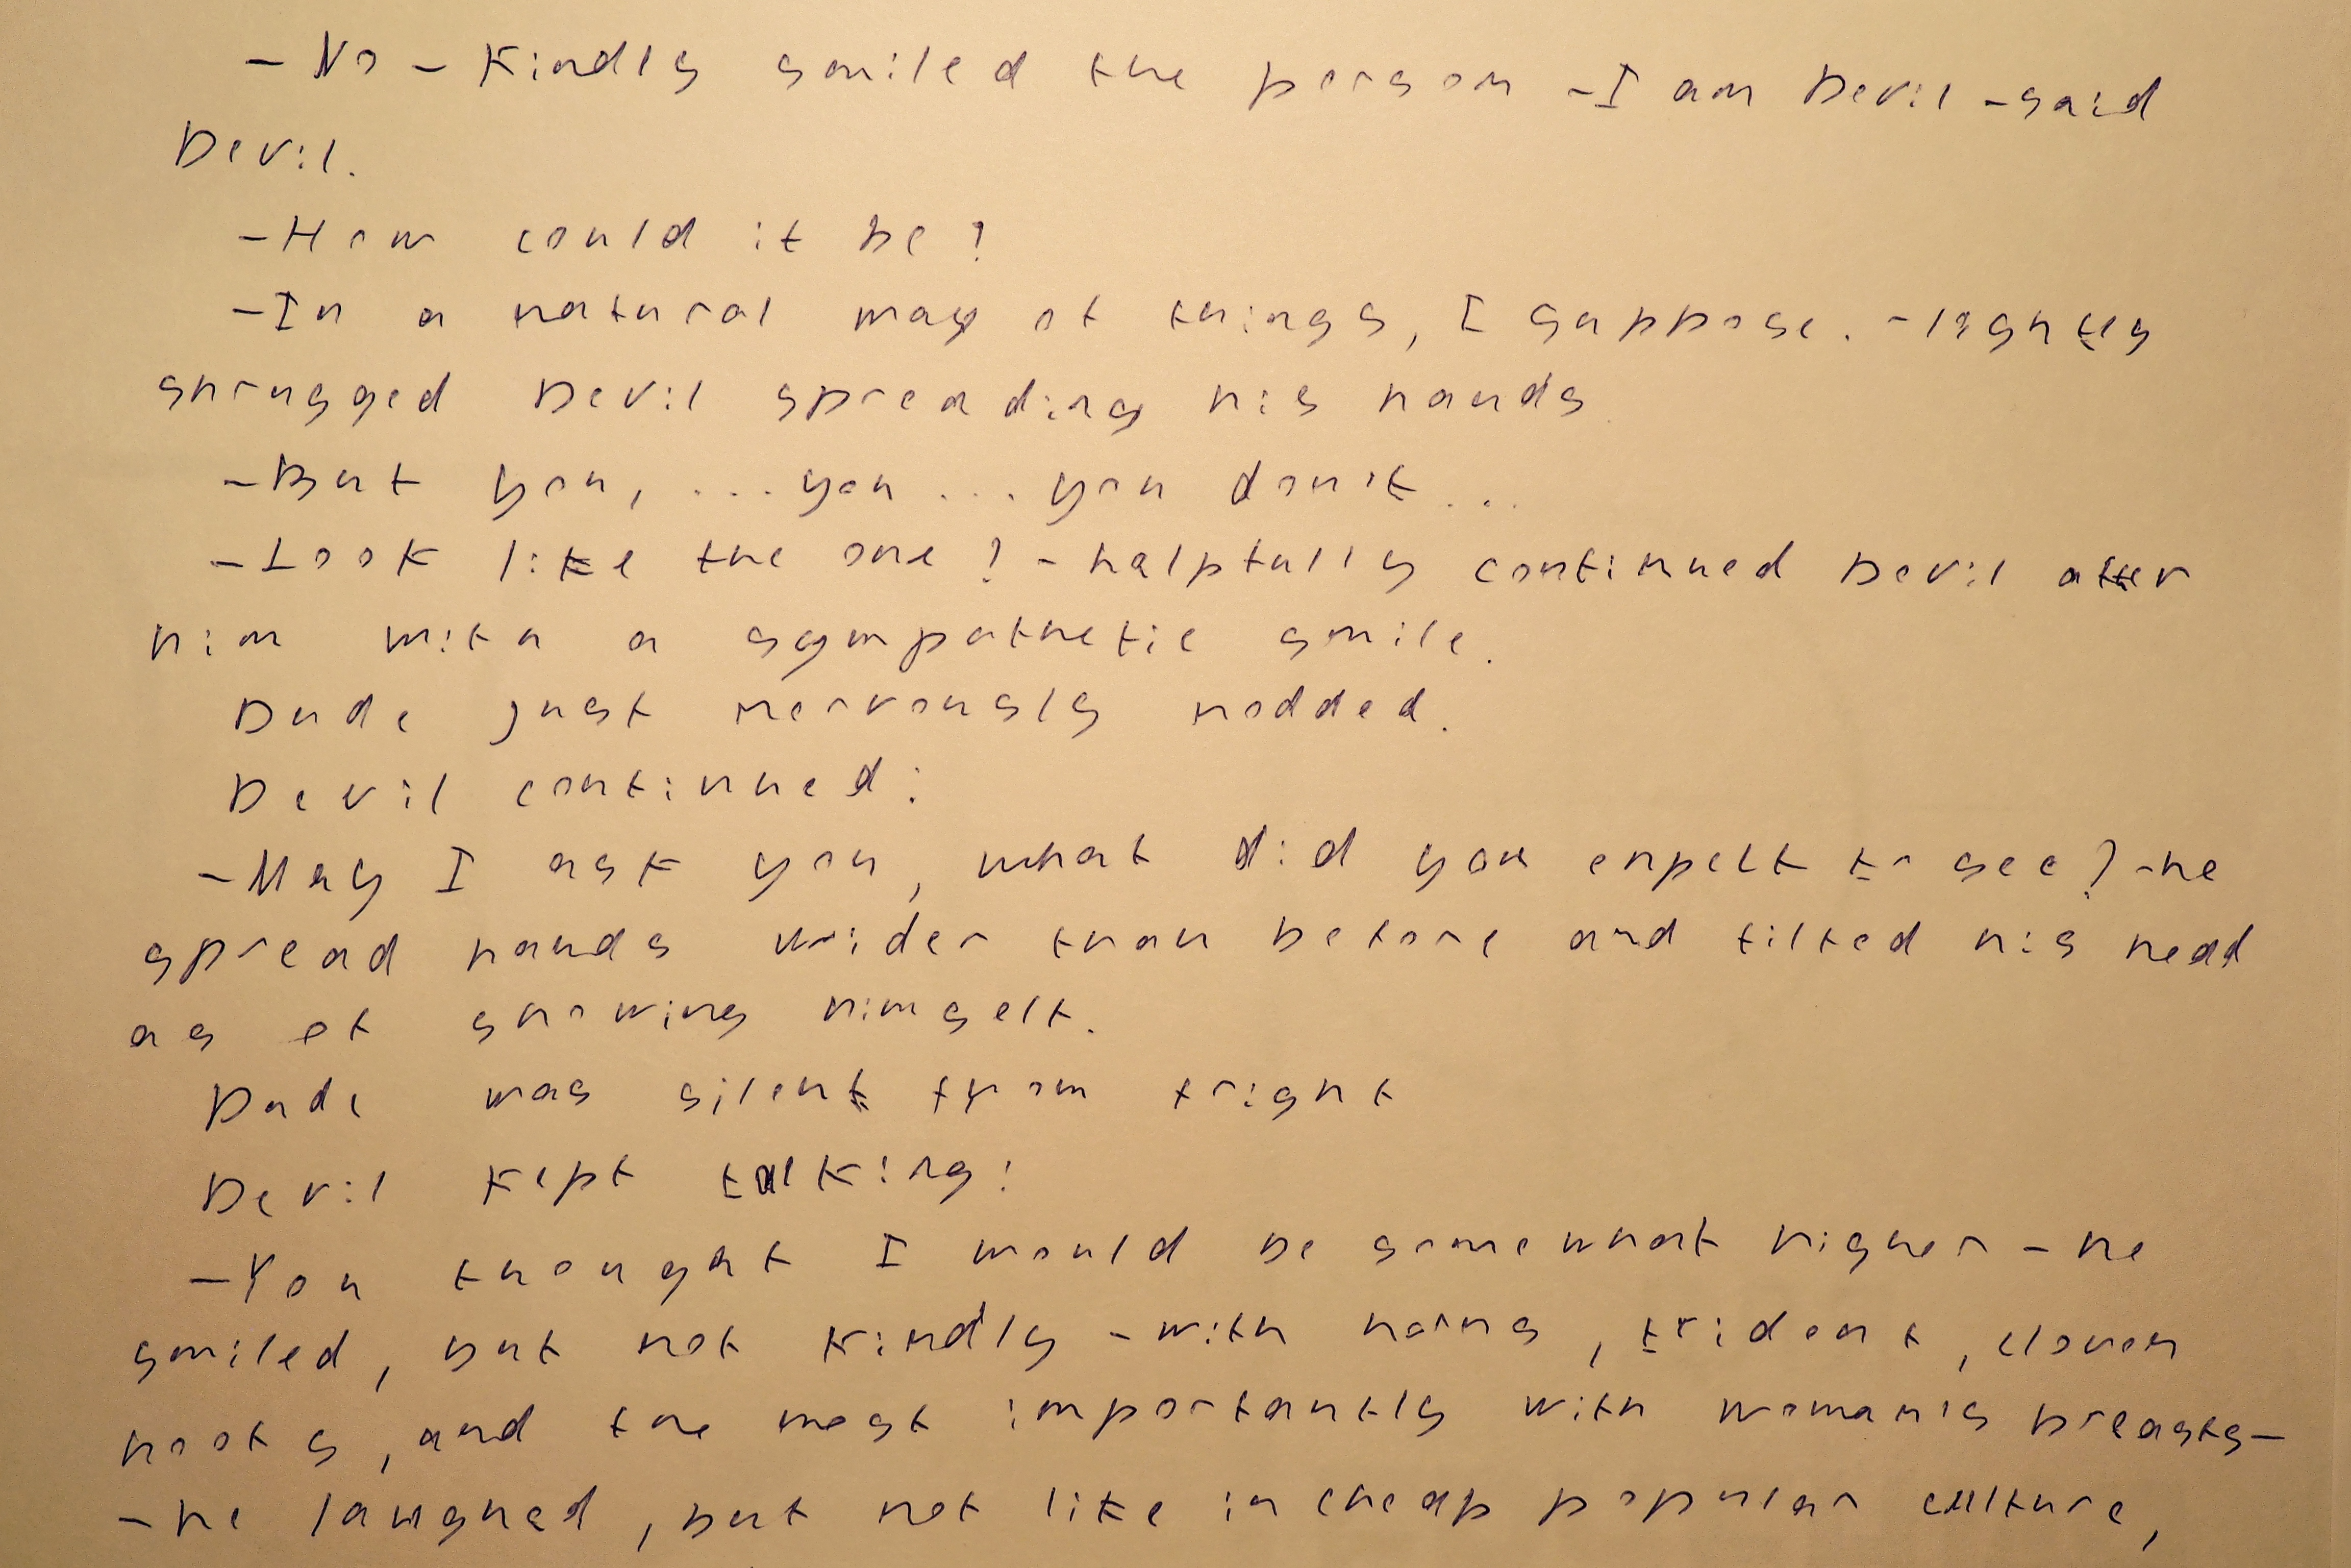 - No - Kindly smiled the person - I am Devil - said
Devil.
- How could it be?
- In a natural way of things, I suppose. - lightly
shrugged Devil spreading his hands.
- But you, ... you ... you don't ...
- Look like the one? - helpfully continued Devil after
him with a sympathetic smile.
Dude just nervously nodded.
Devil continued:
- May I ask you, what did you expect to see? - he
spread hands wider than before and tilted his head
as of showing himself.
Dude was silent from fright
Devil kept talking:
- You thought I would be somewhat higher - he
smiled, but not kindly - with horns, trident, cloven
hoofs, and the most importantly with woman's breasts -
- he laughed, but not like in cheap popular culture,